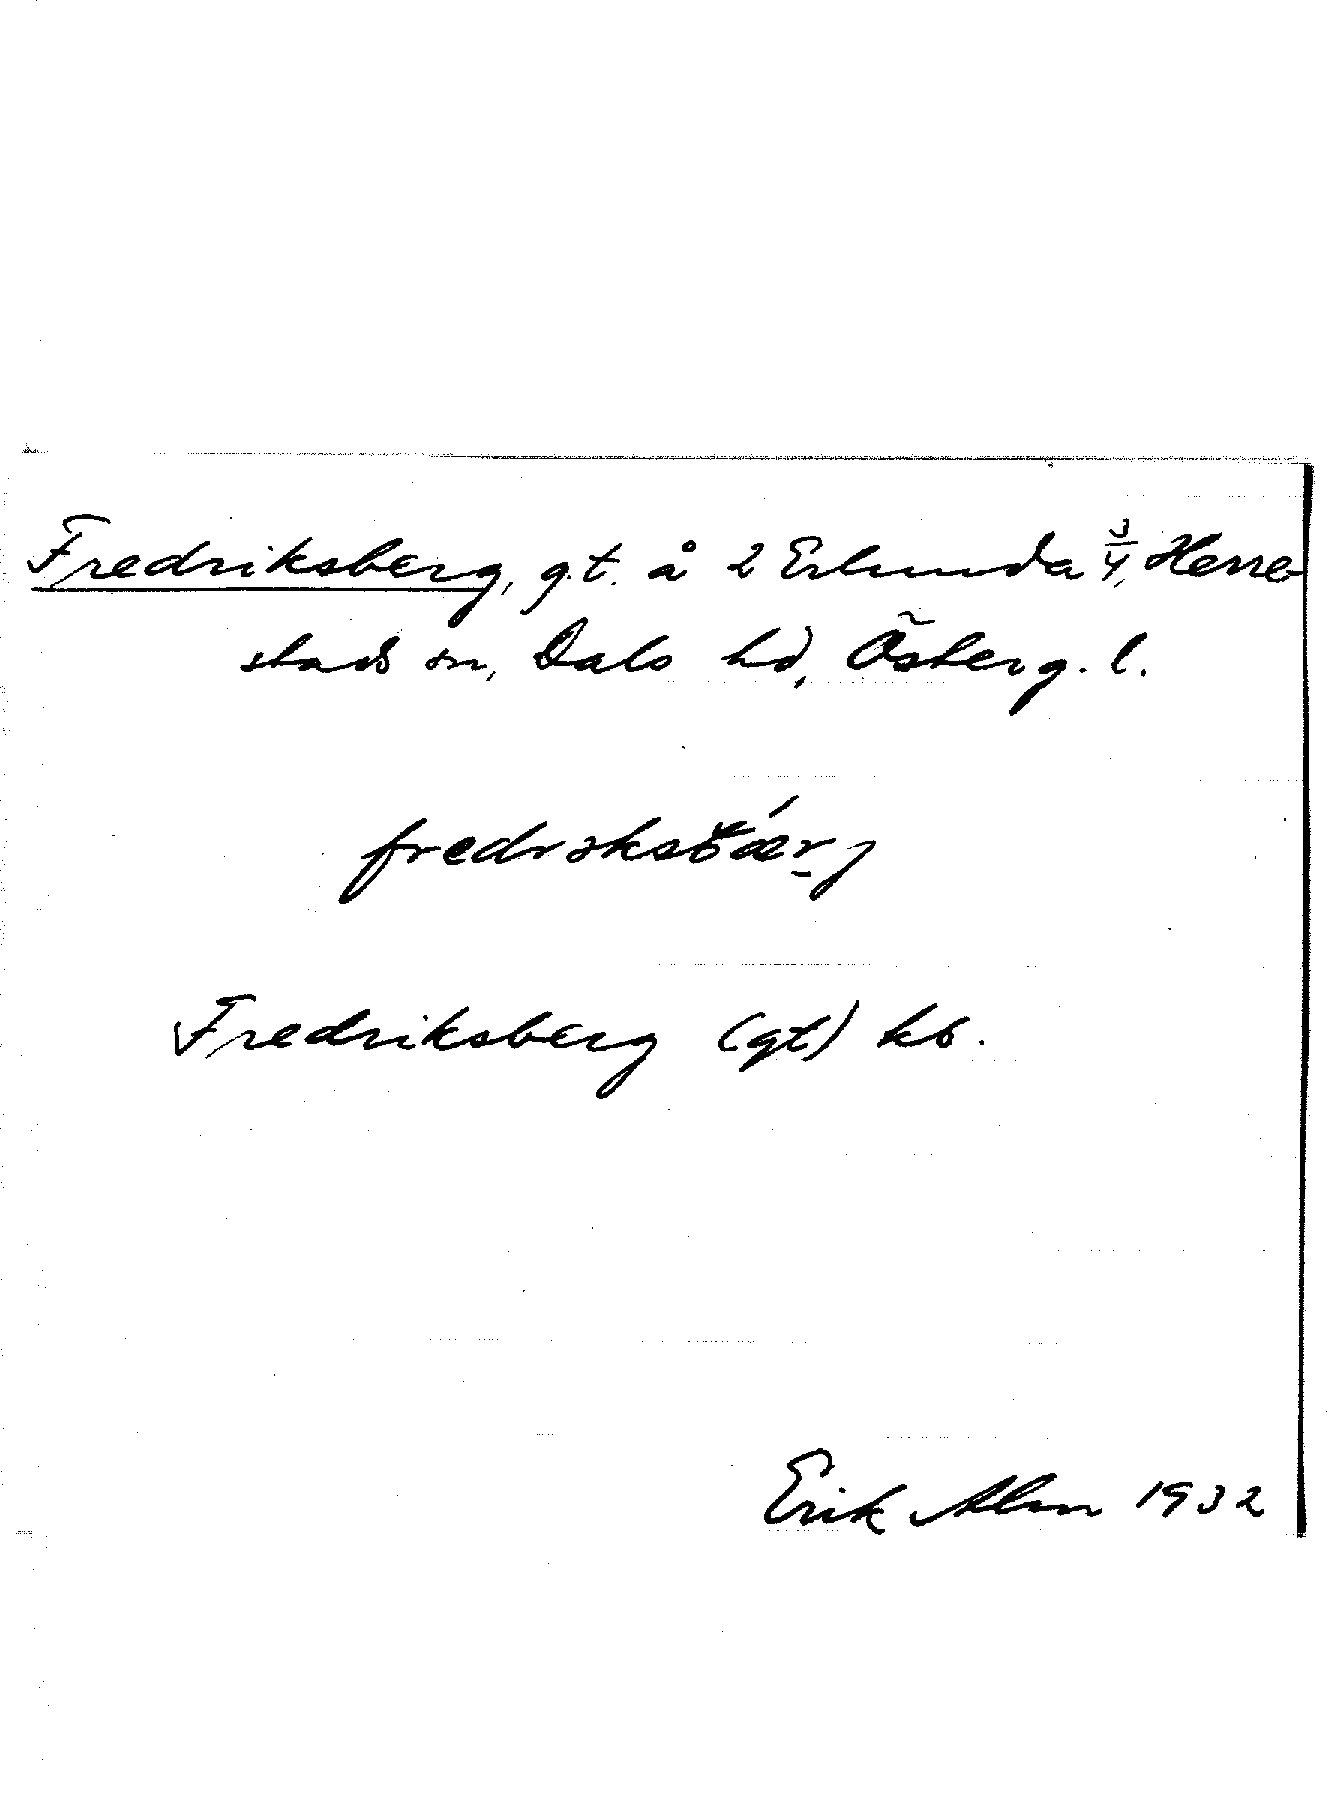 Fredriksberg, gt. å 2 Erlunda 3/4, Herre-
stads sn, Dals hd, Österg. l.
fredrəksbærj
Fredriksberg (gt) kb.
Erik Alm 1932